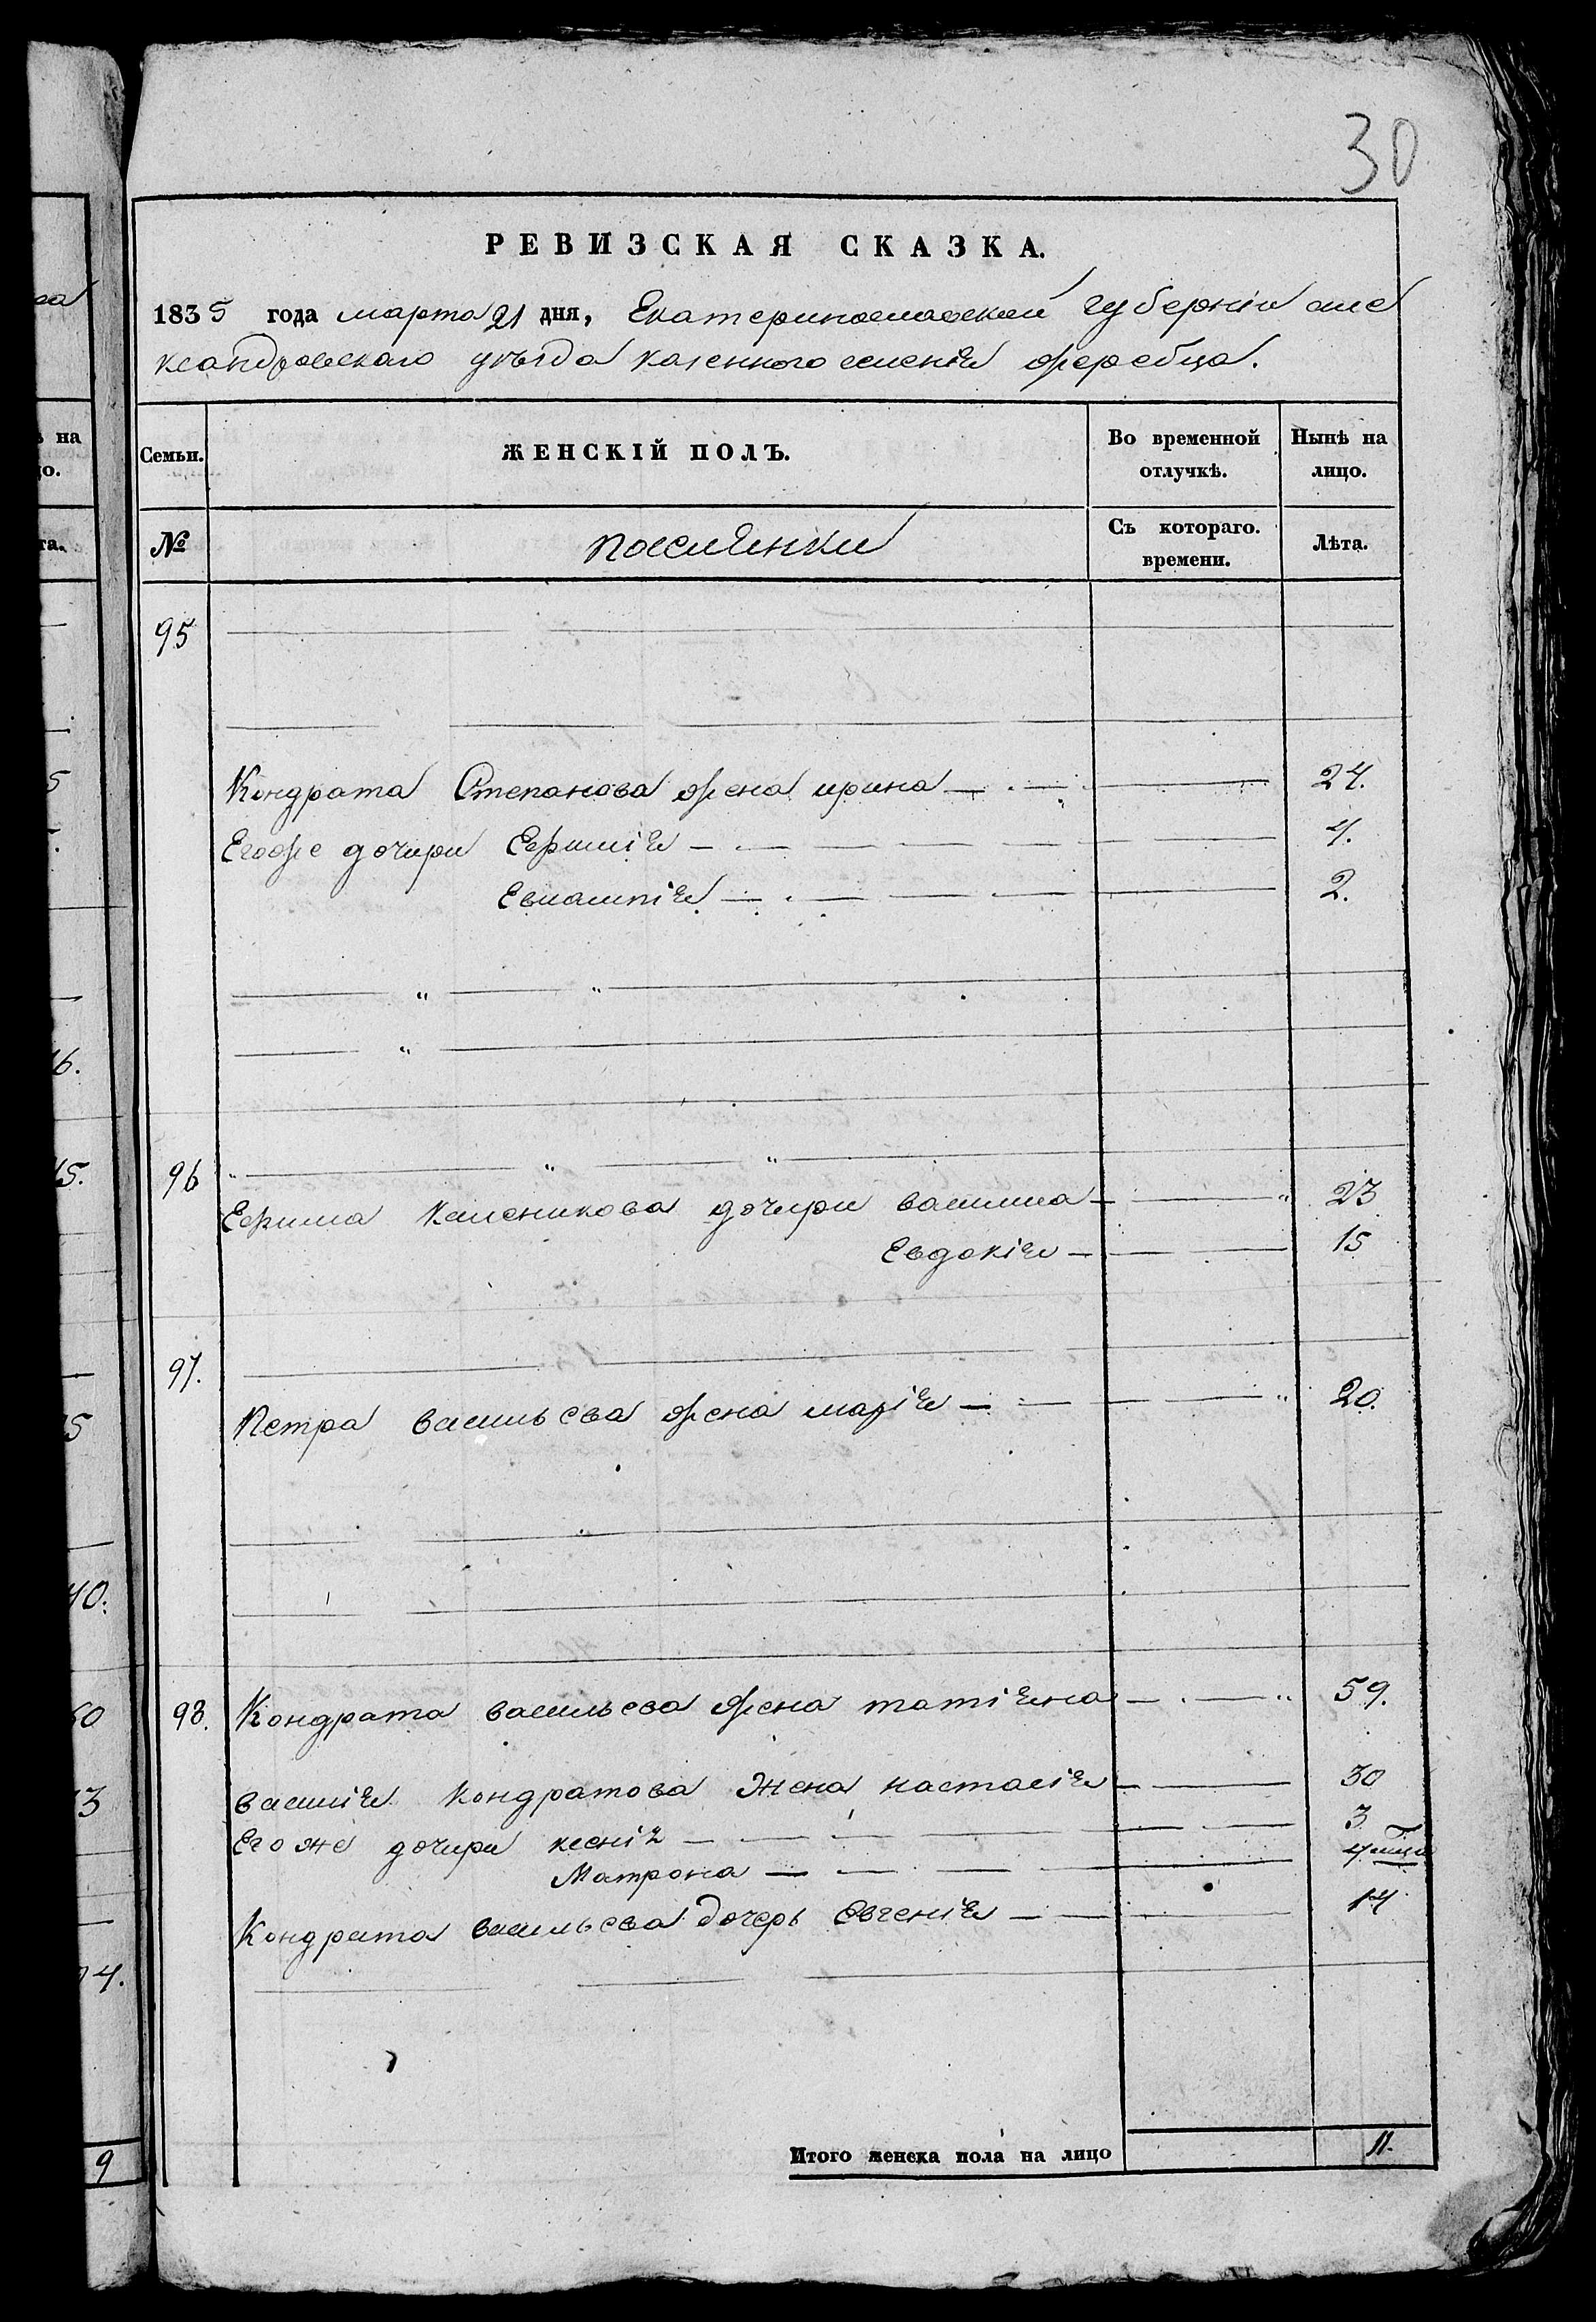 30
РЕВИЗСКАЯ СКАЗКА.
1835 года марта 21 дня, Екатеринославской губернiи але
ксандровскаго уѣзда казенного селенiя жеребца.
Семьи. ЖЕНСКIЙ ПОЛЪ. Во временной отлучкѣ. Нынѣ на лицо.
№ поселянки Съ котораго. времени. Лѣта.
95
Кондрата Степанова жена ирина 24.
Егоже дочири Ефимiя 4.
Евлампiя 2.
96
Ефима дочири василиса 23
Евдокiя 15
97.
Петра васильева жена марiя 20.
98. Кондрата васильева жена татiяна 59.
василiя Кондратова жена настасiя 30
Его же дочири ксенiя 3
Матрона 4 мѣца
Кондрата васильева дочерь Евгенiя 14
Итого женска пола на лицо 11.
на
цо.
та.
5
6.
45.
5
40.
60
3
4.
9